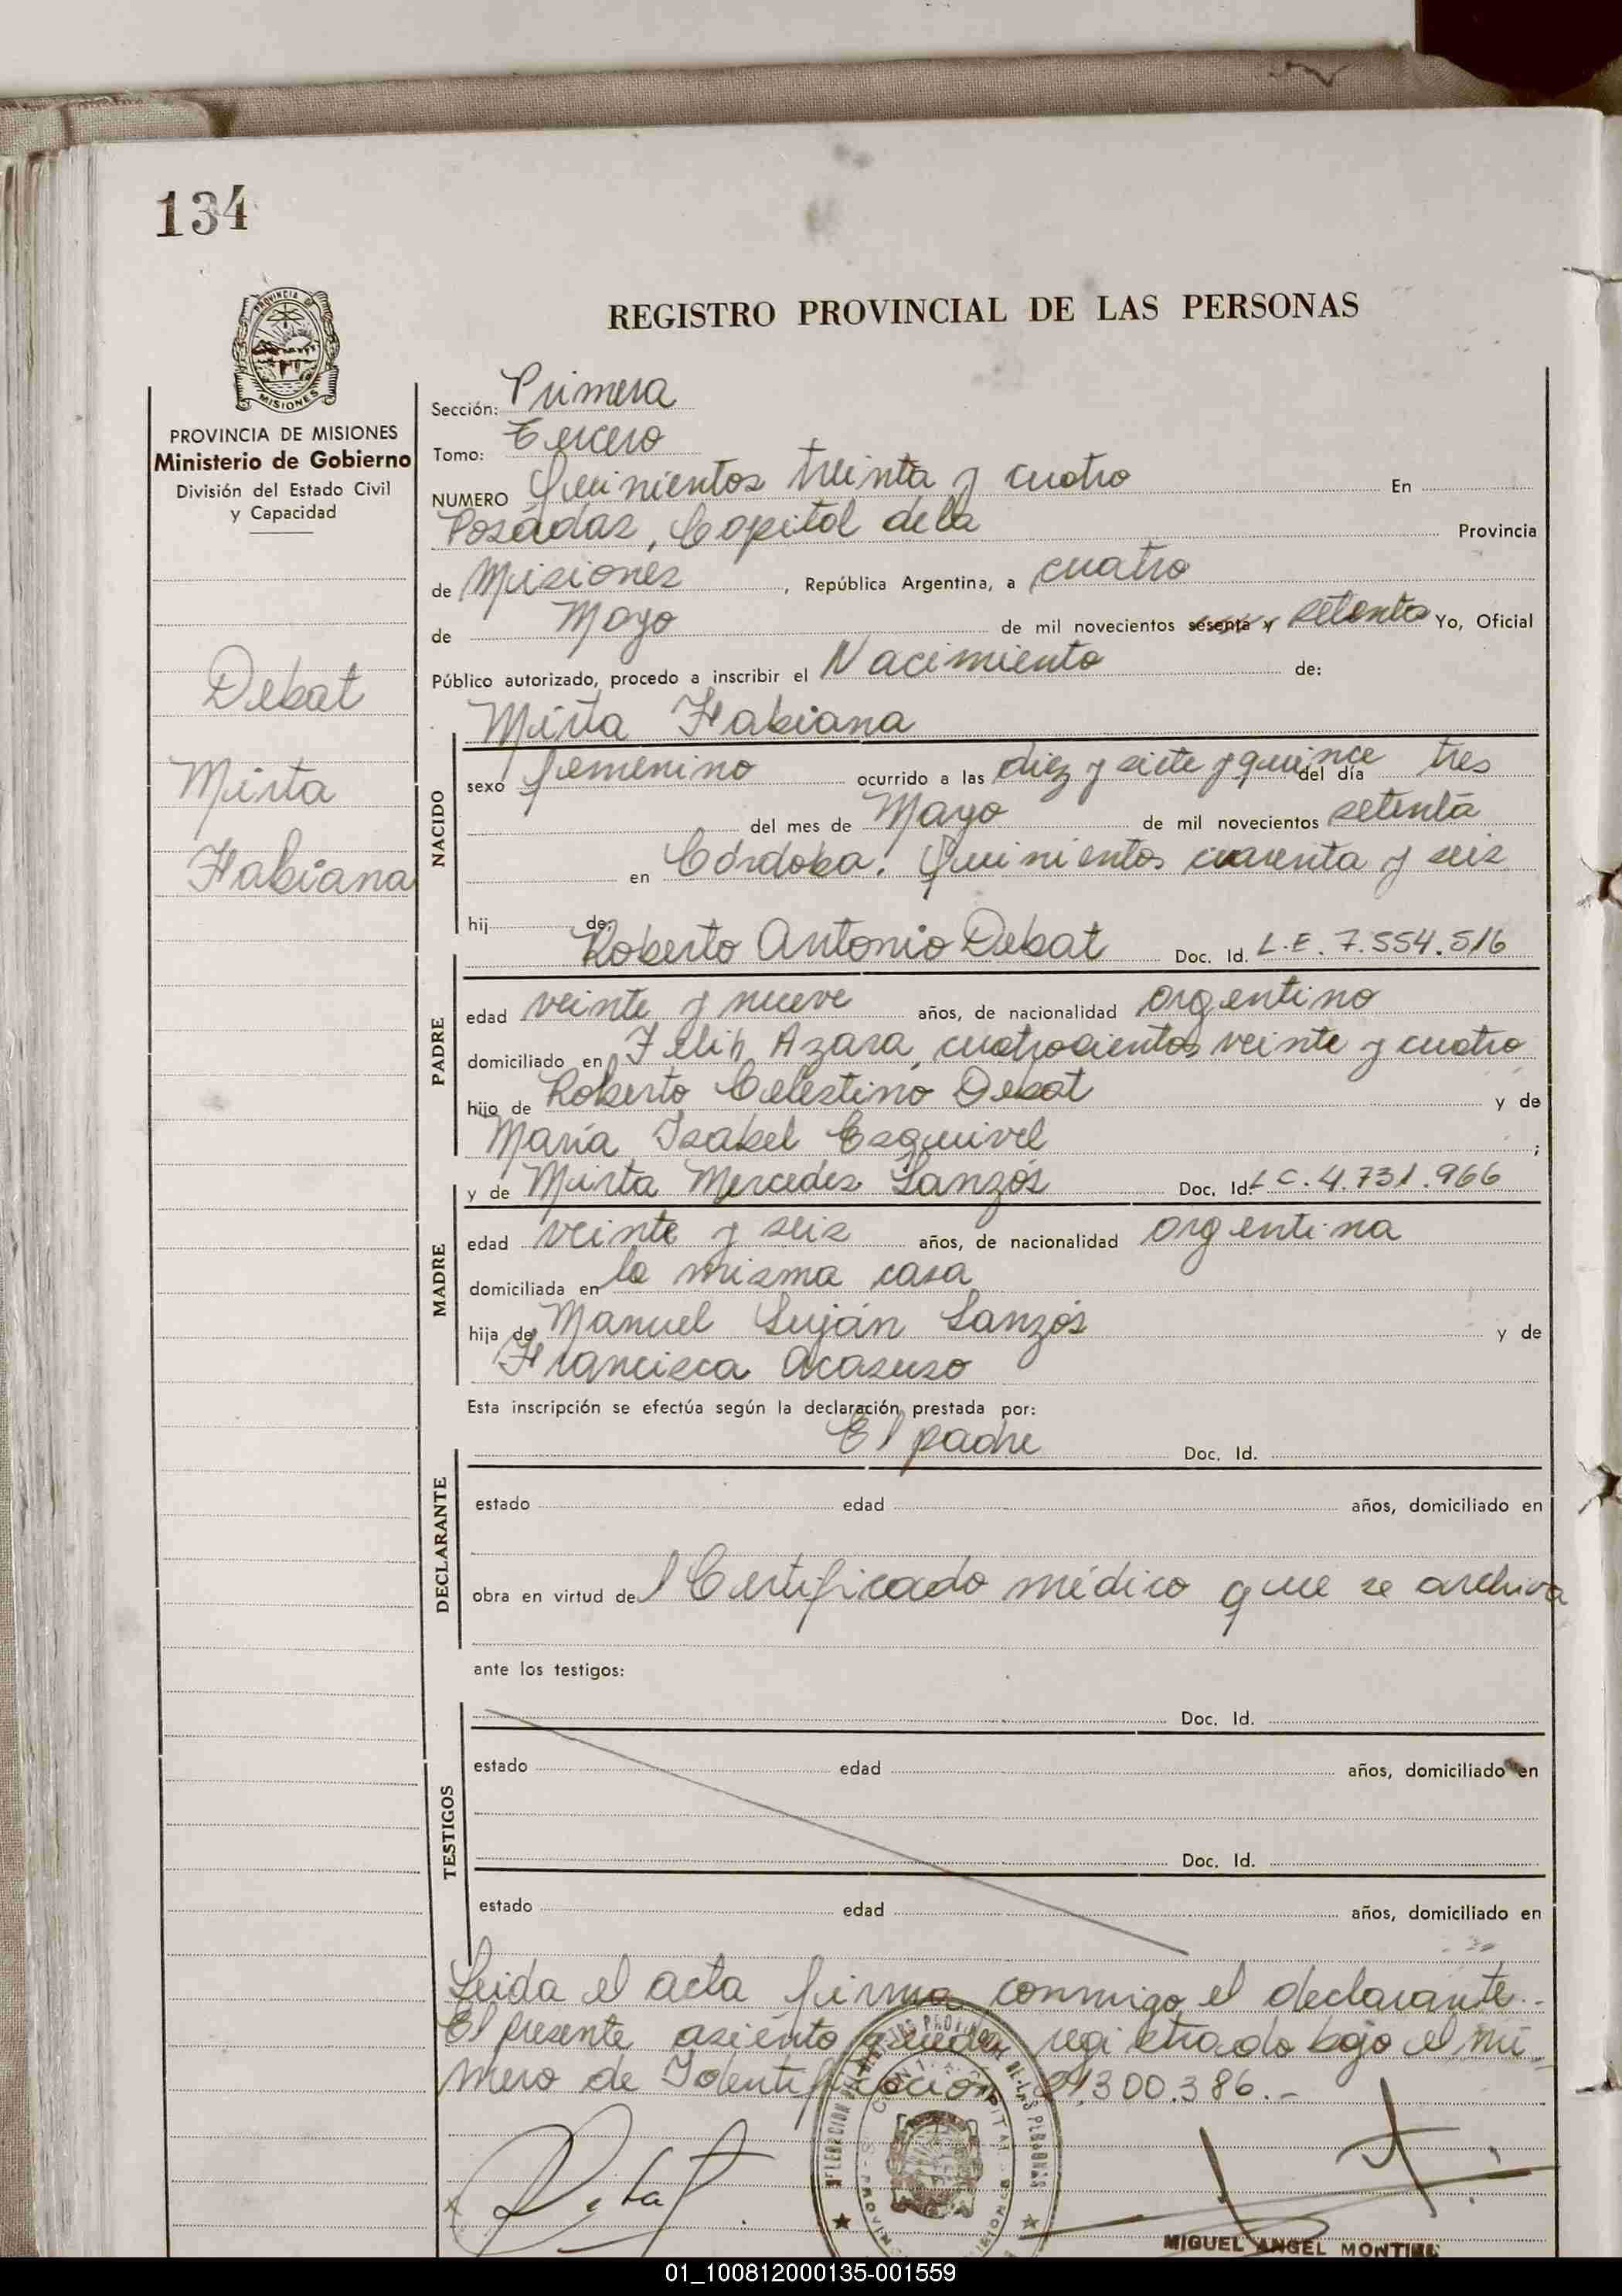 134
REGISTRO PROVINCIAL DE LAS PERSONAS
PROVINCIA DE
MISIONES
PROVINCIA DE MISIONES
Ministerio de Gobierno
División del Estado Civil
y Capacidad
Debat
Mirta
Fabiana
Sección: Primera
Tomo: Tercero
NUMERO Quinientos treinta y cuatro En
Posadas, Capital de la Provincia
de Misiones, República Argentina, a cuatro
de Mayo de mil novecientos sesenta y setenta Yo, Oficial
Público autorizado, procedo a inscribir el Nacimiento de:
Mirta Fabiana
NACIDO
sexo femenino ocurrido a las diez y siete y quince del día tres
del mes de Mayo de mil novecientos setenta
en Córdoba: Quinientos cuarenta y seis
hij de:
Roberto Antonio Debat Doc. Id. L.E. 7.554.516
PADRE
edad veinte y nueve años, de nacionalidad argentino
domiciliado en Felix Azara, cuatrocientos veinte y cuatro
hijo de Roberto Celestino Debat y de
María Isabel Esquivel ;
y de Mirta Mercedes Lanzós Doc. Id. L C. 4.731.966
MADRE
edad veinte y seis años, de nacionalidad argentina
domiciliada en la misma casa
hija de Manuel Luján Lanzós y de
Francisca Acasuso
Esta inscripción se efectúa según la declaración prestada por:
El padre Doc. Id.
DECLARANTE
estado edad años, domiciliado en
obra en virtud del Certificado médico que se archiva
ante los testigos:
TESTIGOS
Doc. Id.
estado edad años, domiciliado en
Doc. Id.
estado edad años, domiciliado en
Leida el acta firma conmigo el declarante.-
El presente asiento queda registrado bajo el nú-
mero de Identificación 21.300.386.-
Debat
MIGUEL ANGEL MONTIEL
01_100812000135-001559